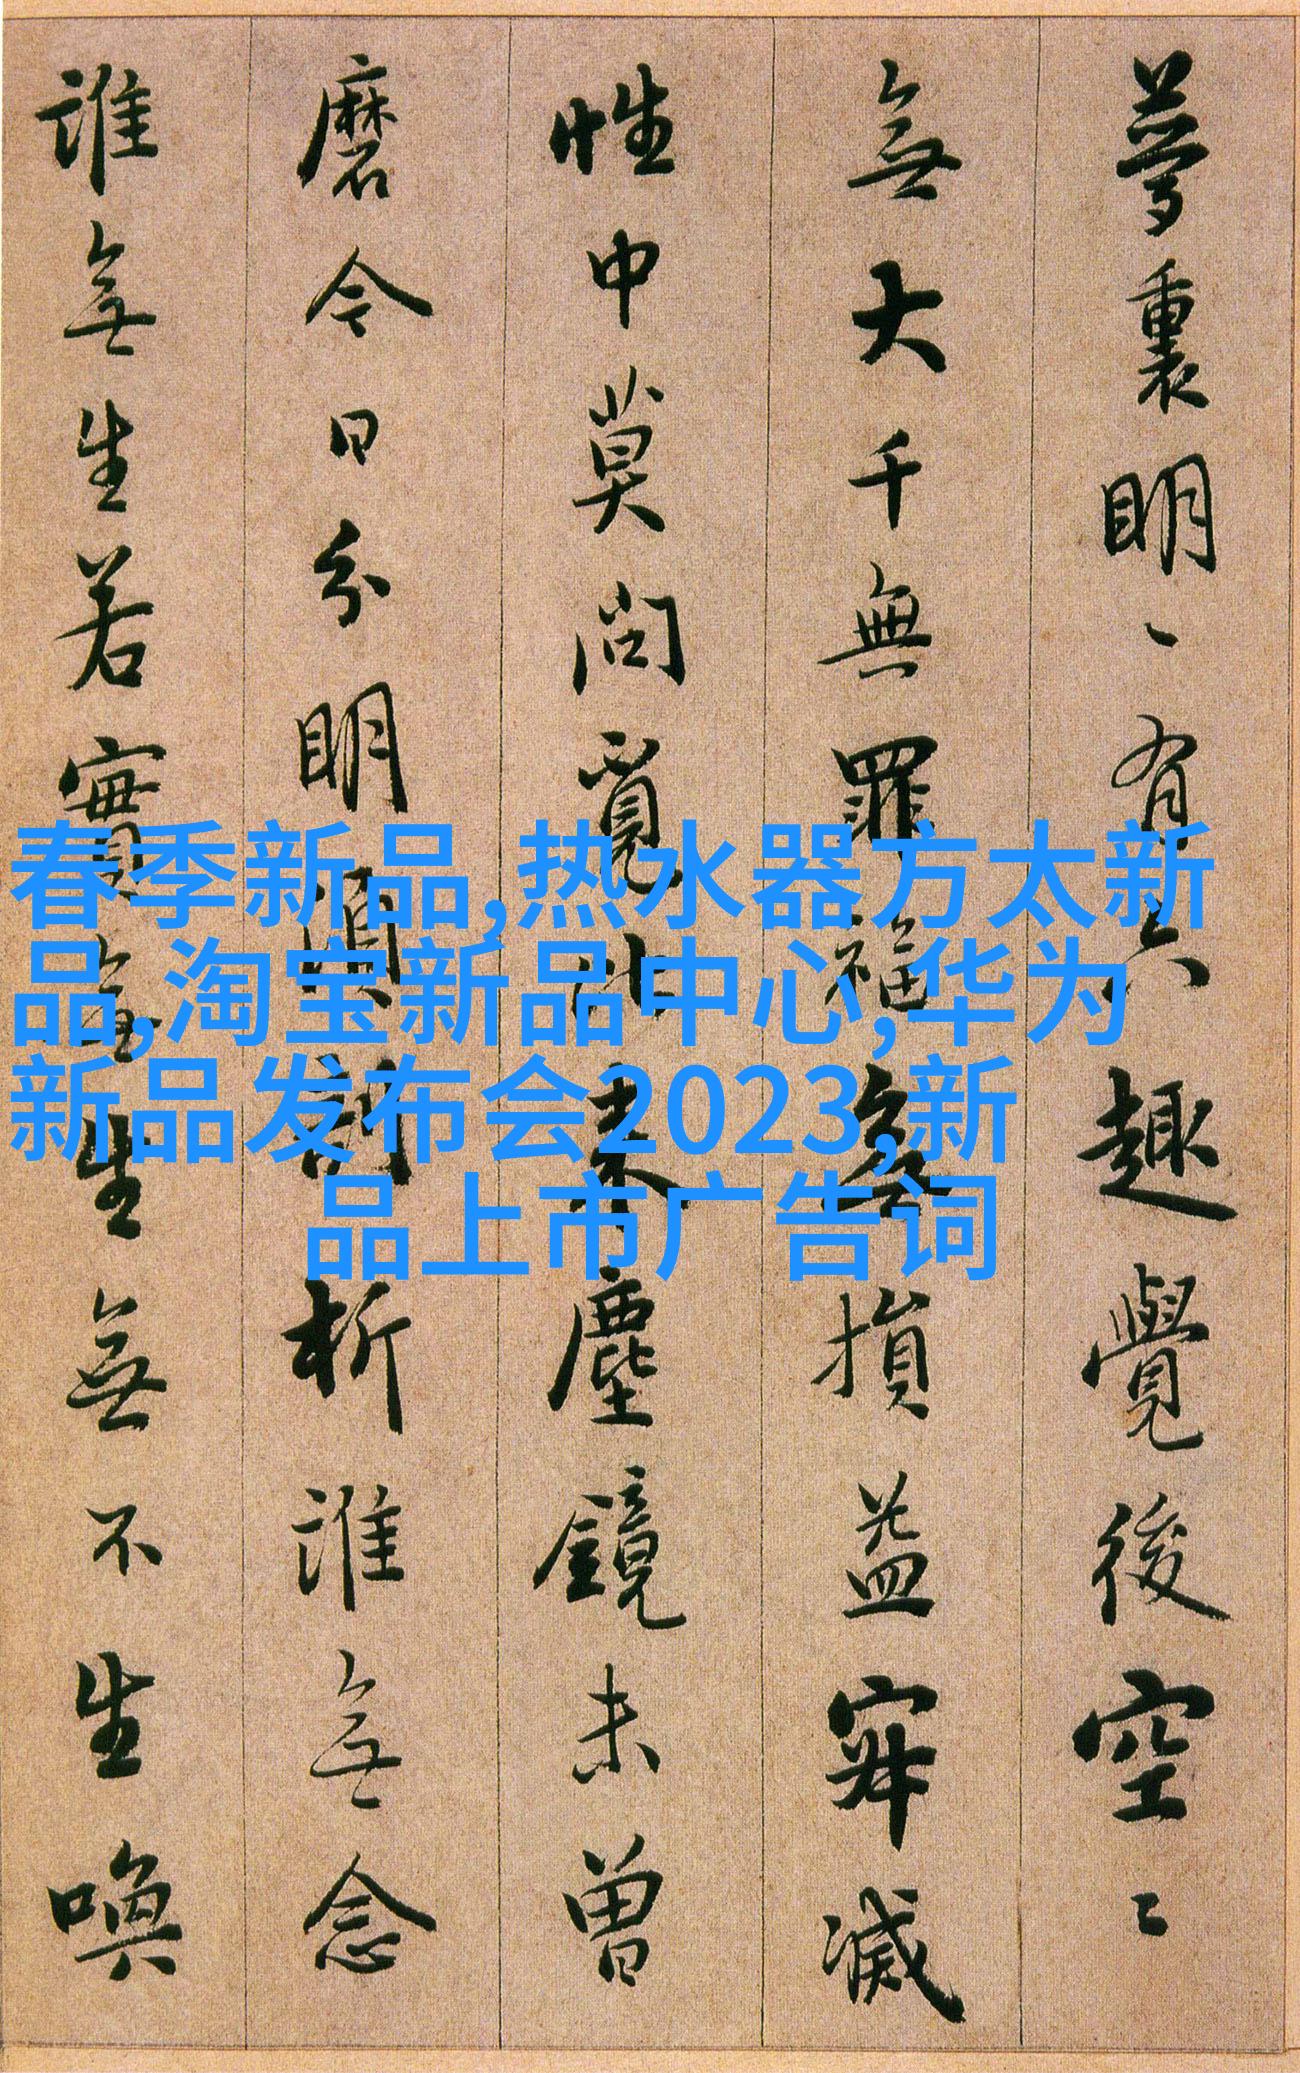 夢裏明明有六趣覺後空空
無大千無罪福無損益寂滅
性中莫問覓比來塵鏡未曾
磨今日分明須剖析誰無念
誰無生若實無生無不生喚
春季新品,热水器方太新
品,淘宝新品中心,华为
新品发布会2023,新
品上市广告词